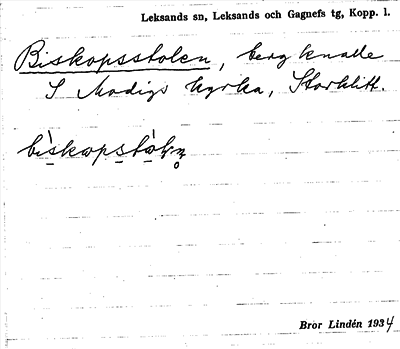 Leksands sn, Leksands och Gagnefs tg, Kopp. l.
Biskopsstolen, bergknalle
S Modigs kyrka, Storklitt.
Bror Lindén 1934